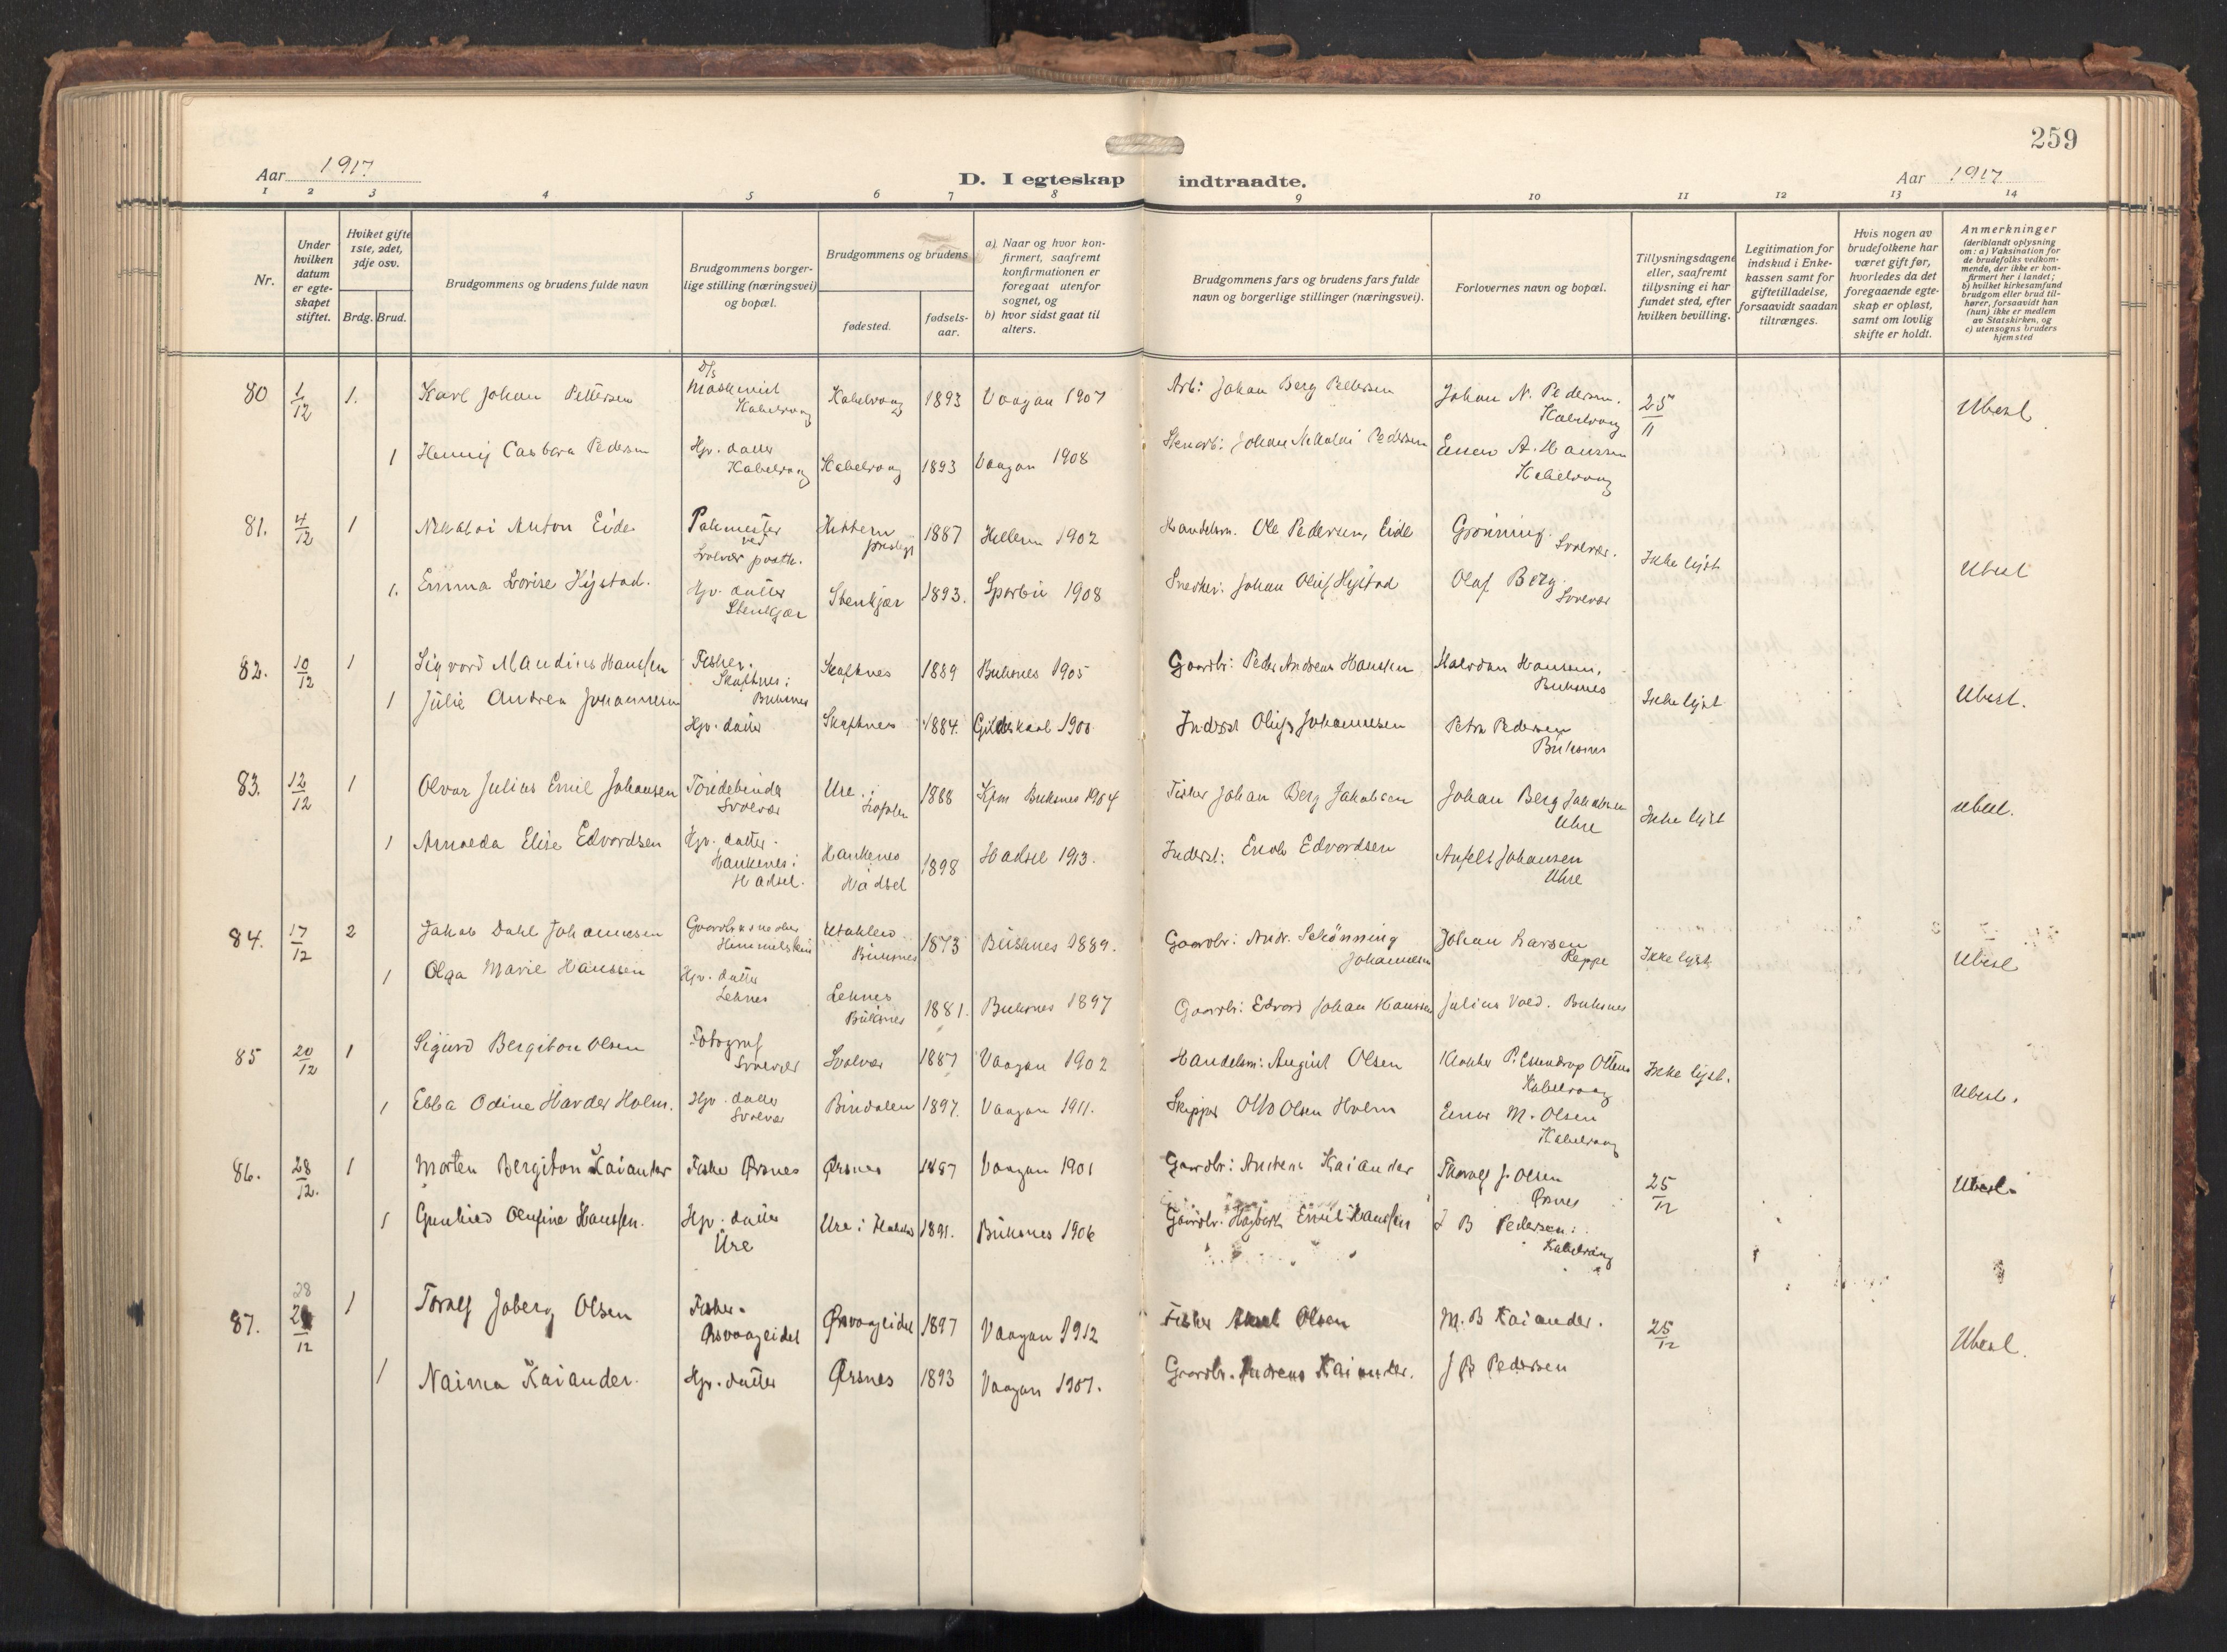 259
Aar 1917.
D. I egteskap indtraadte.
Aar 1917
1 2 3 4 5 6 7 8 9 10 11 12 13 14
Nr.
Under hvilken datum er egteskapet stiftet.
Hviket gifte 1ste, 2det, 3dje osv.
Brdg. Brud.
Brudgommens og brudens fulde navn
Brudgommens borgerlige stilling (næringsvei) og bopæl.
Brudgommens og brudens
fødested.
fødselsaar.
a) Naar og hvor konfirmert, saafremt konfirmationen er foregaat utenfor sognet, og
b) hvor sidst gaat til alters.
Brudgommens fars og brudens fars fulde navn og borgerlige stillinger (næringsvei).
Forlovernes navn og bopæl.
Tillysningsdagene eller, saafremt tillysning ei har fundet sted, efter hvilken bevilling.
Legitimation for indskud i Enkekassen samt for giftetilladelse, forsaavidt saadan tiltrænges.
Hvis nogen av brudefolkene har været gift før, hvorledes da det foregaaende egteskap er opløst, samt om lovlig skifte er holdt.
Anmerkninger
(deriblandt oplysning om: a) Vaksination for de brudefolks vedkommende, der ikke er konfirmert her i landet; b) hvilket kirkesamfund brudgom eller brud tilhører, forsaavidt han (hun) ikke er medlem av Statskirken, og c) utensogns bruders hjemsted
80 1/12 1. Karl Johan Pettersen D/s Maskinist Kabelvaag Kabelvaag 1893 Vaagan 1907 Arb: Johan Berg Pettersen Johan N. Pedersen. Kabelvaag 25/11 Ubesl
1 Henny Pedersen Hjv. datter Kabelvaag Kabelvaag 1893 Vaagan 1908 Stenarb: Johan Nikolai Pedersen Einar A. Hanssen Kabelvaag
81. 4/12 1 Nikolai Anton Eide Pakmester ved Svolvær postk. Hittern 1887 Hittern 1902 Handelsm. Ole Pedersen, Eide Grønning. Svolvær. Ikke lyst Ubesl
1. Emma Lovise Hystad. Hjv. datter Stenkjær Stenkjær 1893. Sparbu 1908 Snedker: Johan Oluf Hystad Olaf Berg. Svolvær
82. 10/12 1 Sigvard Maudius Hanssen Fisker. Skaftnes i Buksnes Skaftnes 1889 Buksnes 1905 Gaardbr: Peder Andreas Hanssen Halvdan Hansen, Buksnes Ikke lyst Ubesl.
1 Julie Andrea Johannesen Hjv. datter Skaftnes 1884. Gildeskaal 1900 Inderst Oluf Johannesen Petra Pedersen Buksnes
83. 12/12 1 Olvar Julius Emil Johansen Tøndebinder Svolvær Ure i Lofoten 1888 Kfm Buksnes 1904 Fisker Johan Berg Jakobsen Johan Berg Jakobsen Uhre Ikke lyst Ubesl.
1 Arnolda Elise Edvardsen Hjv. datter. Haukenes i Hadsel. Haukenes Hadsel 1898 Hadsel 1913. Inderst: Enok Edvardsen Anfelt Johansen Uhre
84. 17/12 2 Jakob Dahl Johannesen Gaardbr Himmelstein Utakleiv Buksnes 1873 Buksnes 1889. Gaardbr: Andr. Schönning Johannesen Johan Larsen Reppe Ikke lyst Ubesl
1 Olga Marie Hanssen Hjv. datter Leknes Leknes Buksnes 1881. Buksnes 1897 Gaardbr: Edvard Johan Hanssen Julius Vold. Buksnes
85 20/12 1 Sigurd Bergiton Olsen Fotograf Svolvær Svolvær 1887 Vaagan 1902 Handelsm: August Olsen Klokker P. Essendrop Kabelvaag Ikke lyst. Ubesl.
1 Ebba Odine Harder Holm. Hjv. datter Svolvær Bindalen 1897. Vaagan 1911. Skipper Otto Olsen Holm Einar M. Olsen Kabelvaag
86. 28/12. 1 Morten Bergiton Kaiander Fisker Ørsnes Ørsnes 1887 Vaagan 1901 Gaardbr: Andreas Kaiander Thoralf J. Olsen Ørsnes 25/12 Ubesl.
1 Gunhild Olufine Hanssen. Hjv. datter Ure Ure i 1891. Buksnes 1906 Gaardbr. Hagbart Emil Hanssen J B Pedersen. Kabelvaag
87. 28 /12 1 Toralf Joberg Olsen Fisker. Ørsvaageidet Ørsvaageidet 1897 Vaagan 1912 Fisker Olsen M. B Kaiander. 25/12 Ubesl.
1 Naima Kaiander. Hjv. datter Ørsnes 1893 Vaagan 1907. Gaardbr. Andreas Kaiander. J B Pedersen